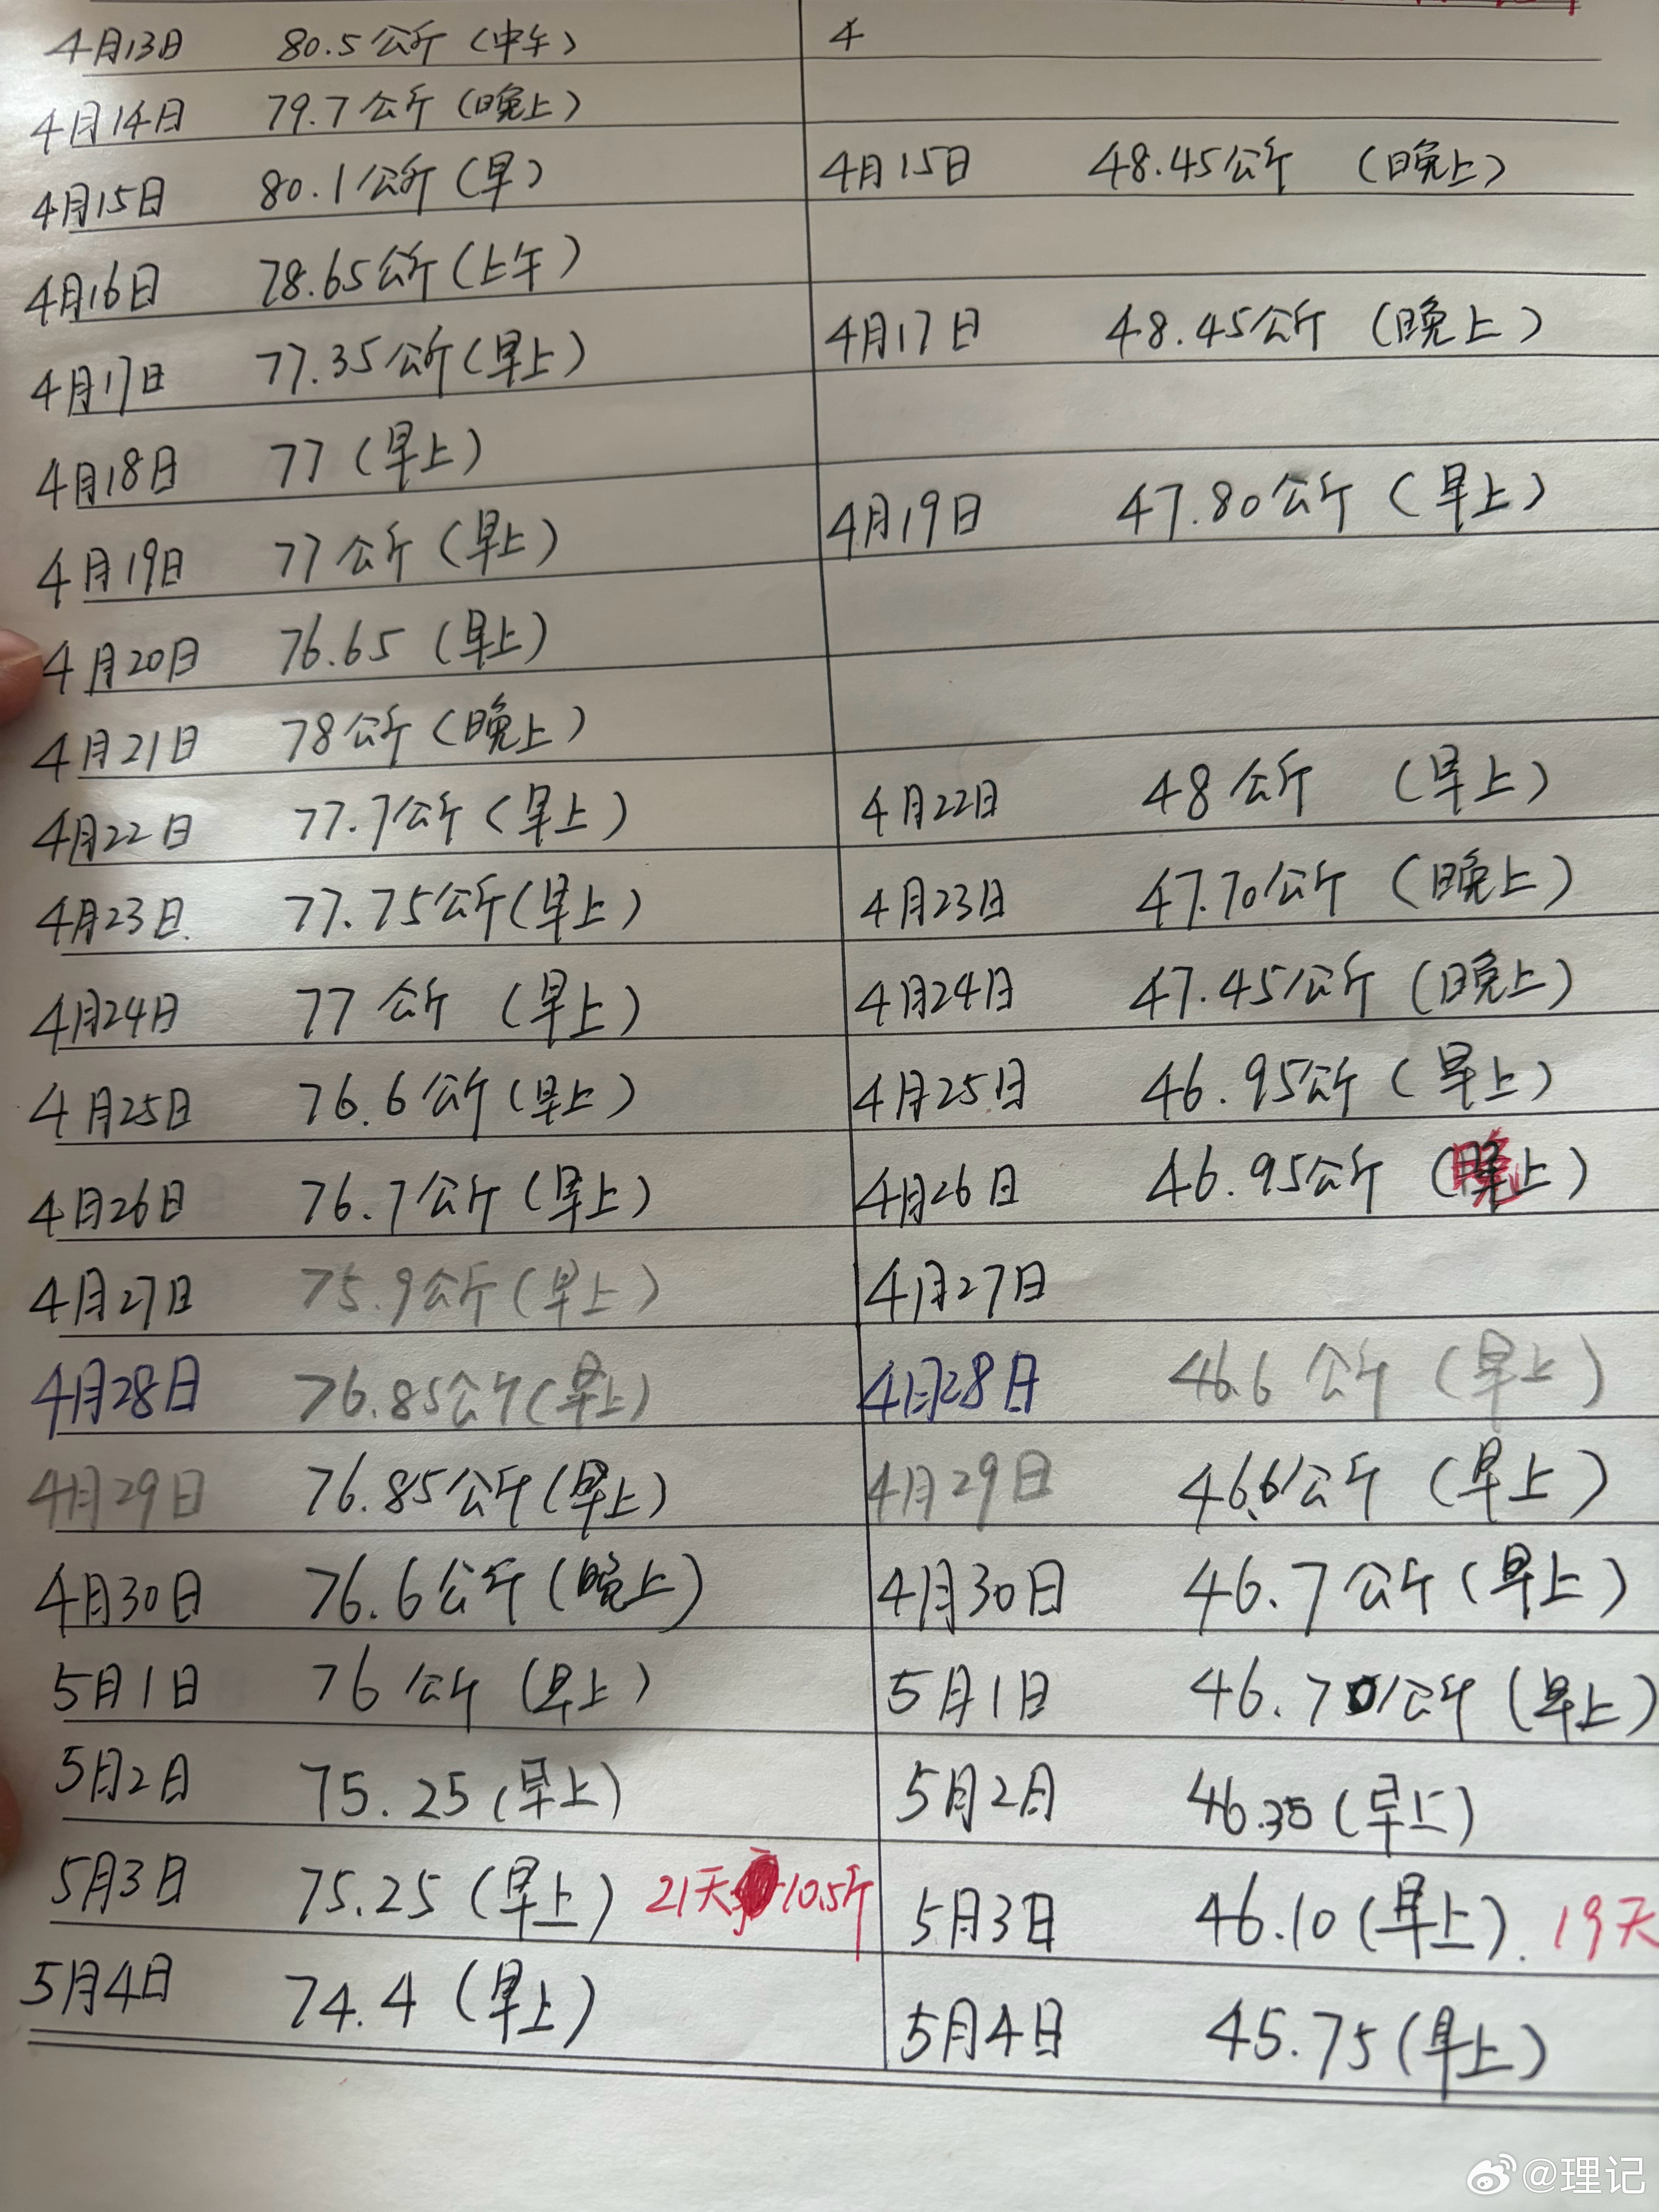 4月13日 80.5公斤（中午） 4
4月14日 79.7公斤（晚上）
4月15日 80.1公斤（早） 4月15日 48.45公斤（晚上）
4月16日 78.65公斤（上午）
4月17日 77.35公斤（早上） 4月17日 48.45公斤（晚上）
4月18日 77（早上）
4月19日 77公斤（早上） 4月19日 47.80公斤（早上）
4月20日 76.65（早上）
4月21日 78公斤（晚上）
4月22日 77.7公斤（早上） 4月22日 48公斤（早上）
4月23日. 77.75公斤（早上） 4月23日 47.70公斤（晚上）
4月24日 77公斤（早上） 4月24日 47.45公斤（晚上）
4月25日 76.6公斤（早上） 4月25日 46.95公斤（早上）
4月26日 76.7公斤（早上） 4月26日 46.95公斤（晚上）
4月27日 75.9公斤（早上） 4月27日
4月28日 76.85公斤（早上） 4月28日 46.6公斤（早上）
4月29日 76.85公斤（早上） 4月29日 46.6公斤（早上）
4月30日 76.6公斤（晚上） 4月30日 46.7公斤（早上）
5月1日 76公斤（早上） 5月1日 46.70公斤（早上）
5月2日 75.25（早上） 5月2日 46.35（早上）
5月3日 75.25（早上） 21天 10.5斤 5月3日 46.10（早上）. 19天
5月4日 74.4（早上） 5月4日 45.75（早上）
@理记